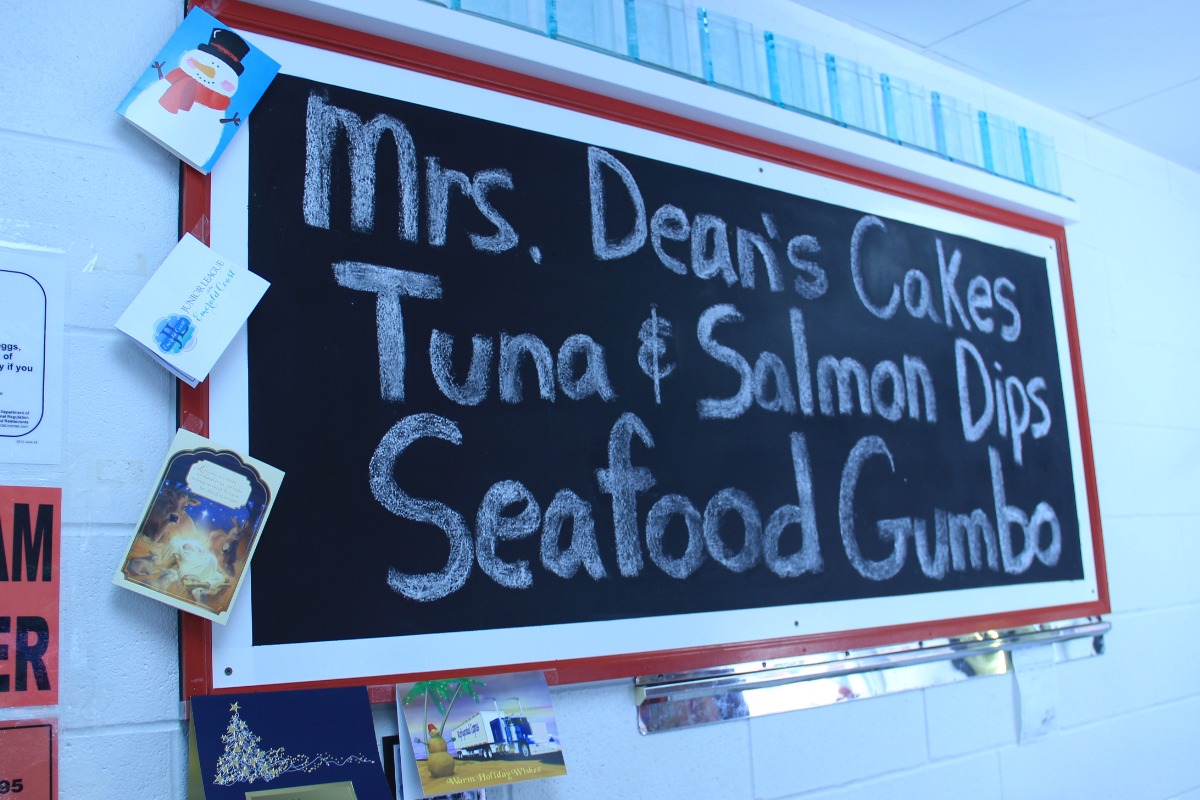 Mrs. Dean's Cakes
Tuna & Salmon Dips
Seafood Gumbo
JUNIOR LEAGUE
Emerald Coast
eggs,
of
y if you
AM
ER
95
Warm Holiday Wishes